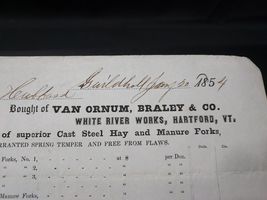 Guildhall Jany 20 1854
Hubbard
Bought of VAN ORNUM, BRALEY & CO.
WHITE RIVER WORKS, HARTFORD, VT.
of superior Cast Steel Hay and Manure Forks,
WARRANTED SPRING TEMPER AND FREE FROM FLAWS.
Dolls.
Forks, No. 1, at $ per Doz.
" 2, " "
" 3, " "
" "
" "
Manure Forks,